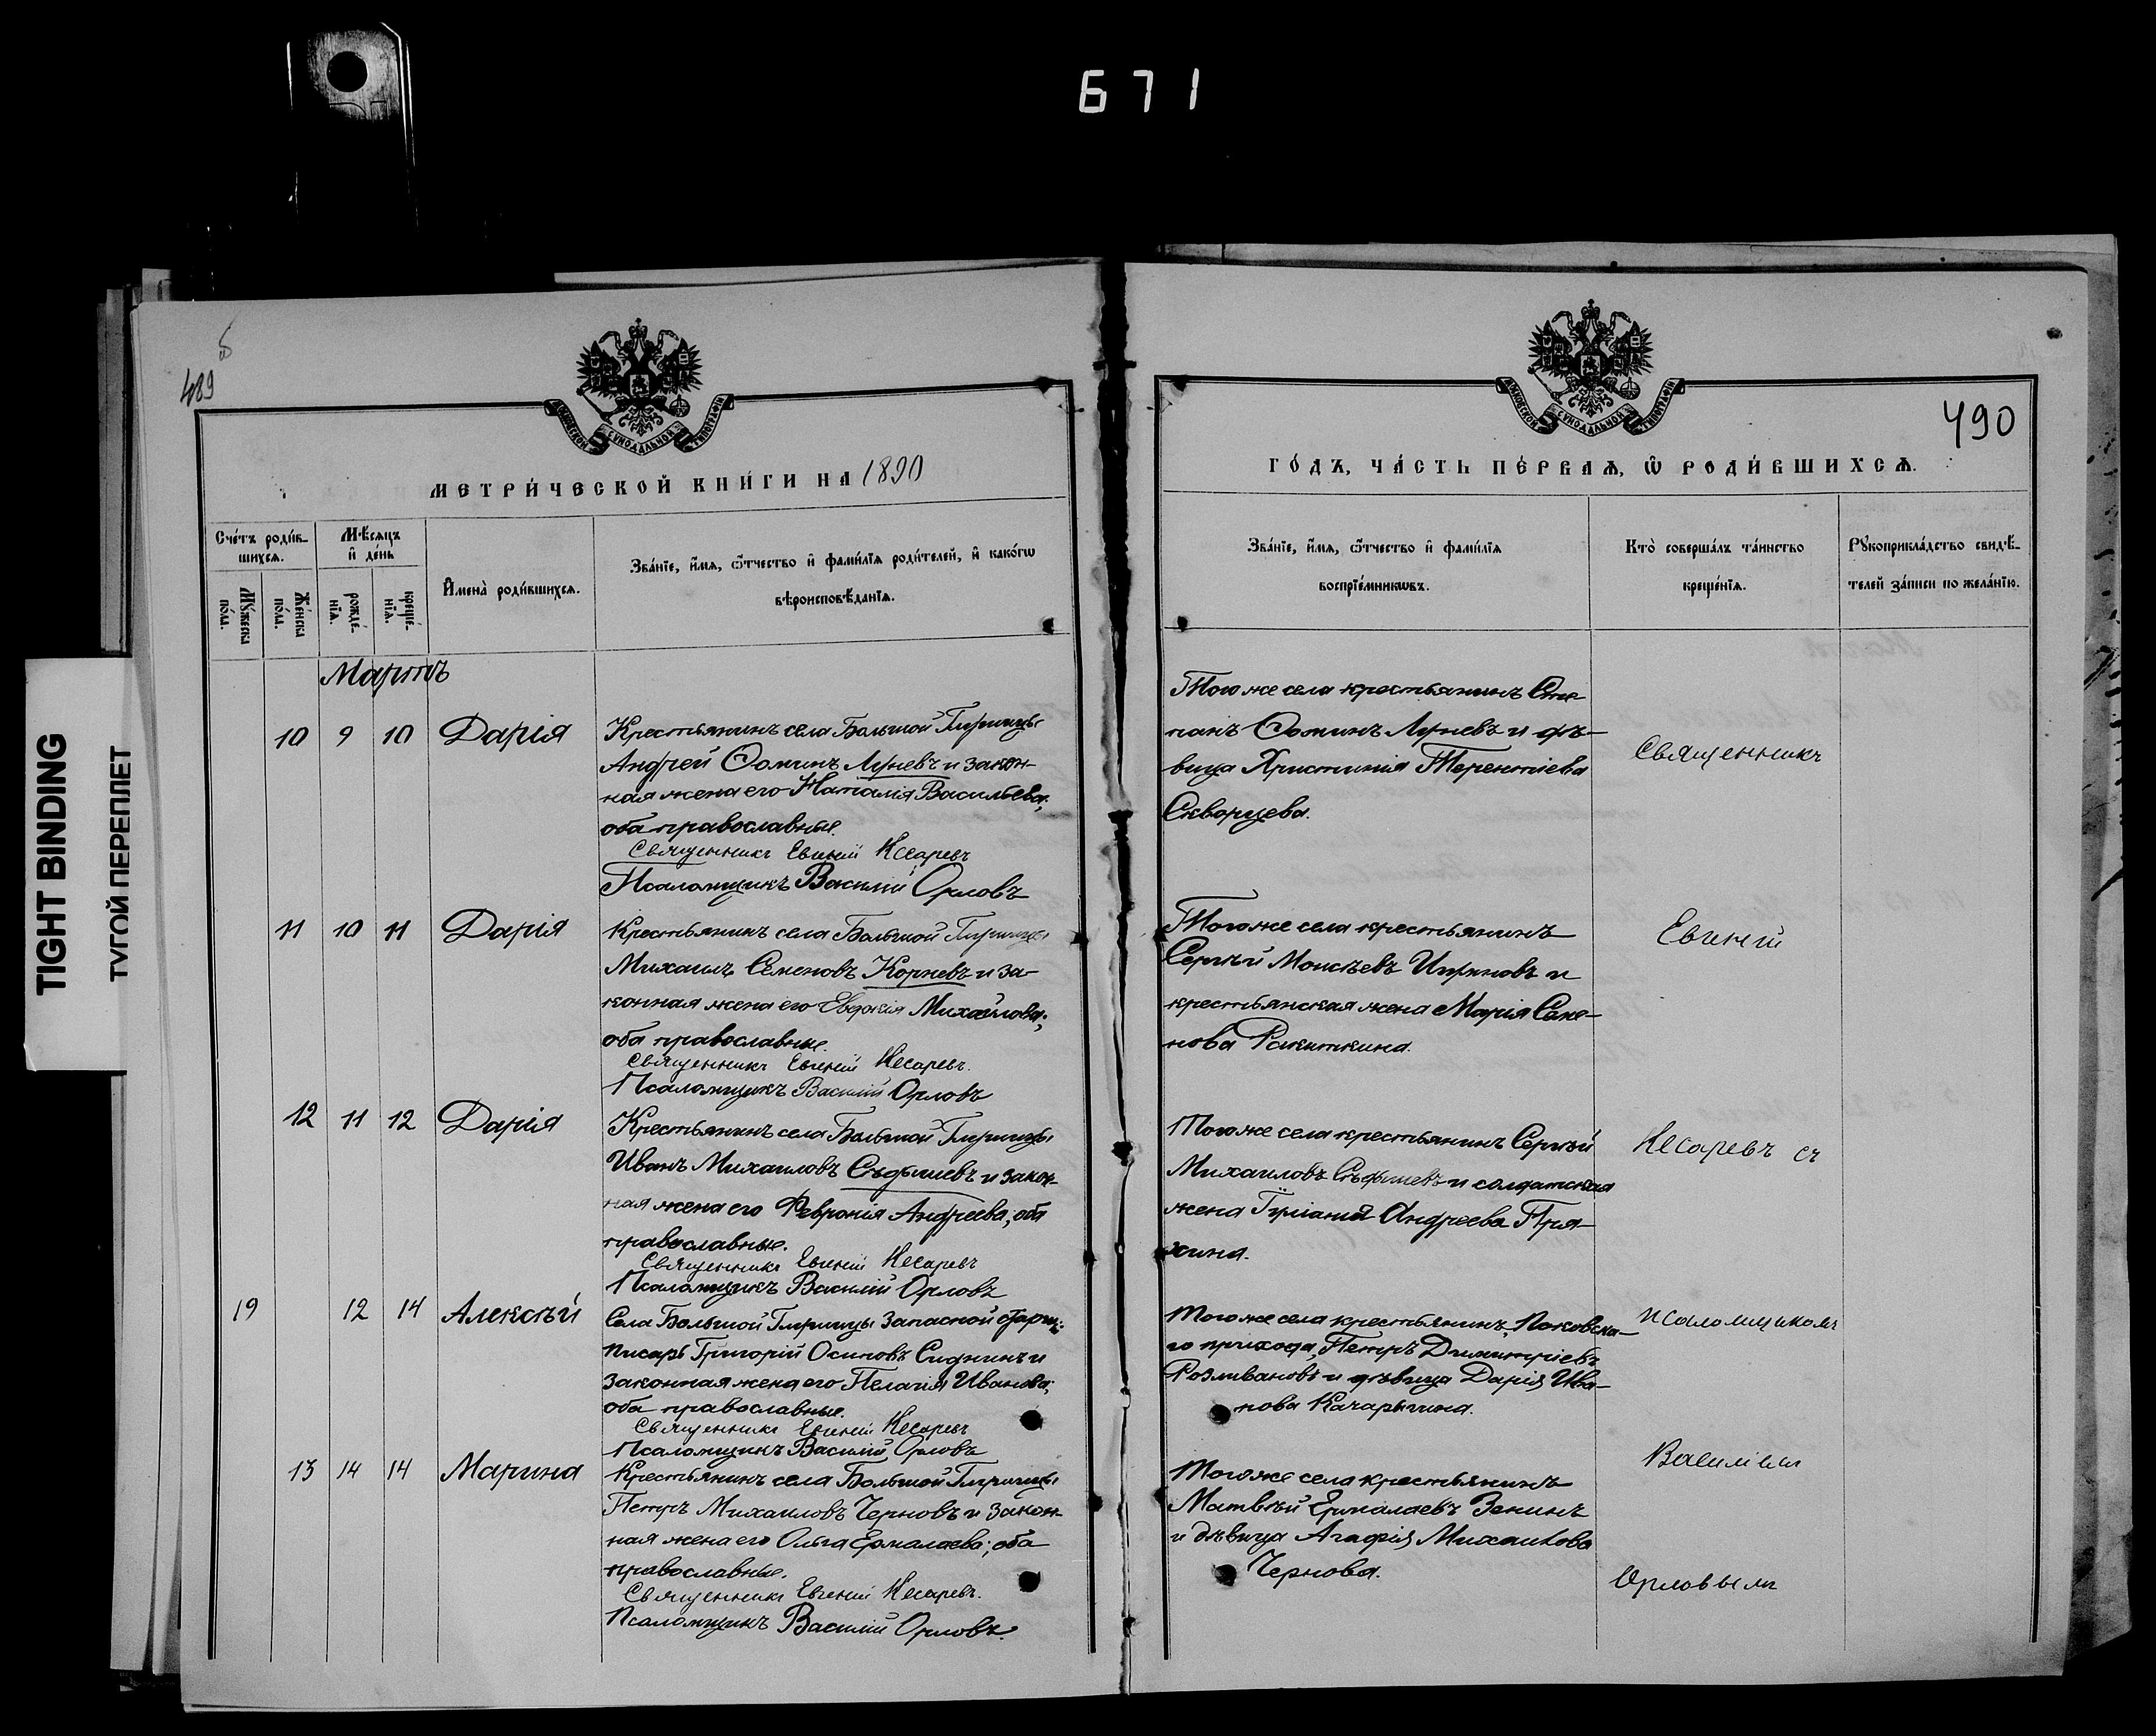 671
TIGHT BINDING
ТУГОЙ ПЕРЕПЛЕТ
489
МЕТРИ́ЧЕСКОЙ КНИ́ГИ НА 1890
Сче́тъ роди́в-
шихся.
Мѣ́сяцъ
и҆ де́нь
Мꙋ́жеска
по́ла.
Же́нска
по́ла.
рожде́-
нїѧ.
креще́-
нїѧ.
И҆мена̀ роди́вшихсѧ.
Зва́нїе, и҆́мѧ, ѻ҆́тчество и҆ фами́лїѧ роди́телей, и҆ како́гѡ
вѣроисповѣ́данїѧ.
Мартъ
10 9 10 Дарія
Крестьянинъ села Большой Пирицы
Андрей Ѳоминъ Луневъ и закон-
ная жена его Наталія Васильева;
оба православные.
Священникъ Евгеній Кесаревъ
Псаломщикъ Василій Орловъ
11 10 11 Дарія
Крестьянинъ села Большой Пирицы
Михаилъ Семеновъ Корневъ и за-
конная жена его Евдокія Михайлова;
оба православные.
Священникъ Евгеній Кесаревъ.
Псаломщикъ Василій Орловъ
12 11 12 Дарія
Крестьянинъ села Большой Пирицы
Иванъ Михаиловъ и закон-
ная жена его Февронія Андреева; оба
православные.
Священникъ Евгеній Кесаревъ
Псаломщикъ Василій Орловъ
19 12 14 Алексѣй
Села Большой Пирицы запасной
писарь Григорій Осиповъ Сиднинъ и
законная жена его Пелагія Иванова;
оба православные.
Священникъ Евгеній Кесаревъ
Псаломщикъ Василій Орловъ
13 14 14 Марина
Крестьянинъ села Большой Пирицы
Петръ Михаиловъ Черновъ и закон-
ная жена его Ольга Ермалаева; оба
православные.
Священникъ Евгеній Кесаревъ.
Псаломщикъ Василій Орловъ.
490
ГО́ДЪ, ЧА́СТЬ ПЕ́РВАѦ, Ѡ҆ РОДИ́ВШИХСѦ.
Зва́нїе, и҆́мѧ, ѻ҆́тчество и҆ фами́лїѧ
воспрїе́мникѡвъ.
Кто̀ соверша́лъ та́инство
креще́нїѧ.
Рꙋкоприкла́дство свидѣ́-
телей за́писи по жела́нїю.
Того же села крестьянинъ Сте-
панъ Ѳоминъ Луневъ и дѣ-
вица Христинія Терентіева
Скворцева.
Того же села крестьянинъ
Сергѣй Моисѣевъ и
крестьянская жена Марія Семе-
нова Ракиткина.
Того же села крестьянинъ Сергѣй
Михаиловъ и солдатская
жена Іуліанія Андреева Пря-
хина.
Того же села крестьянинъ, Покровска-
го прихода, Петръ Димитріевъ
Розливановъ и дѣвица Дарія Ива-
нова Качарыгина.
Того же села крестьянинъ
Матвѣй Ермалаевъ Зенинъ
и дѣвица Агафія Михаилова
Чернова.
Священникъ
Евгеній
Кесаревъ съ
псаломщикомъ
Василіем
Орловымъ